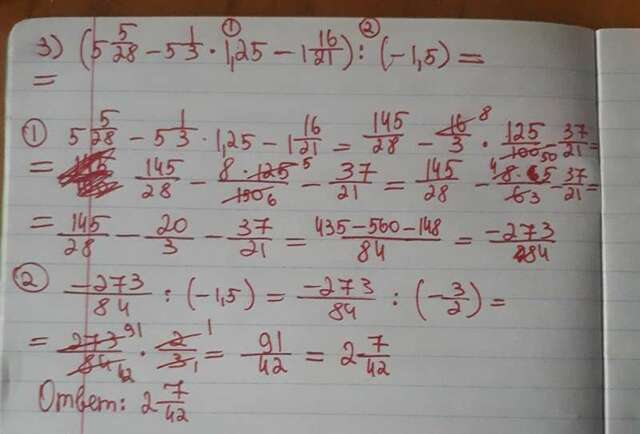 3) (5 5/28 - 5 1/3 · 1,25 - 1 16/21) : (-1,5) =
=
① 5 5/28 - 5 1/3 · 1,25 - 1 16/21 = 145/28 - 16/3 8 · 125/100 50 - 37/21 =
= 145/28 - 8 · 125 5/150 6 - 37/21 = 145/28 - 4 8 · 5/6 3 - 37/21 =
= 145/28 - 20/3 - 37/21 = 435 - 560 - 148/84 = -273/84
② -273/84 : (-1,5) = -273/84 : (-3/2) =
= 273 91/84 42 · 2 1/3 1 = 91/42 = 2 7/42
Ответ: 2 7/42